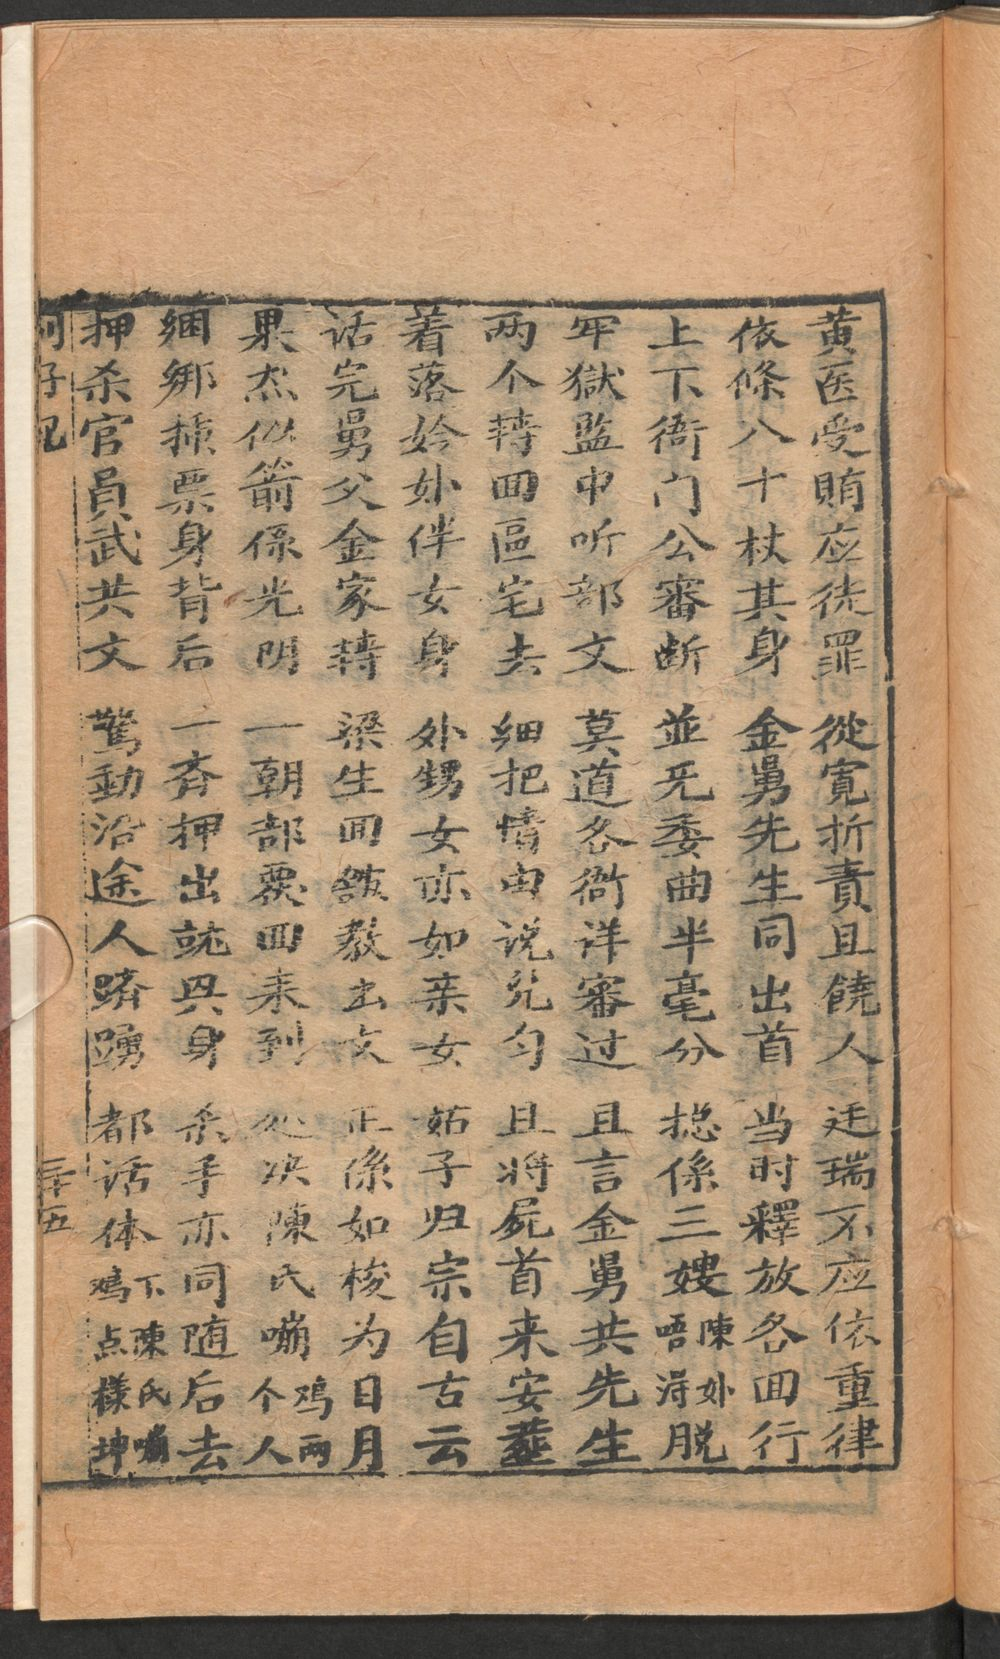 黄医受賄应徒罪 從寛折責且饒人 廷瑞不应依重律
依條八十杖其身 金舅先生同出首 当时釋放各囬行
上下衙门公審断 並无委曲半毫分 捴係三嫂陳妚唔淂脱
牢獄監中听部文 莫道各衙详審过 且言金舅共先生
两个转囬區宅去 细把情由说兊匀 且将屍首来安塟
着落妗妚伴女身 外甥女亦如亲女 姑子归宗自古云
话完舅父金家转 梁生囬舘教出文 正係如梭为日月
果然似箭係光阴 一朝部覆囬来到 处决陳氏嘣鸡两个人
綑绑摽票身背后 一斉押出就典身 杀手亦同随后去
押杀官员武共文 驚動沿途人跻踴 都话体下陳氏嘣鸡点樣坤
三十五